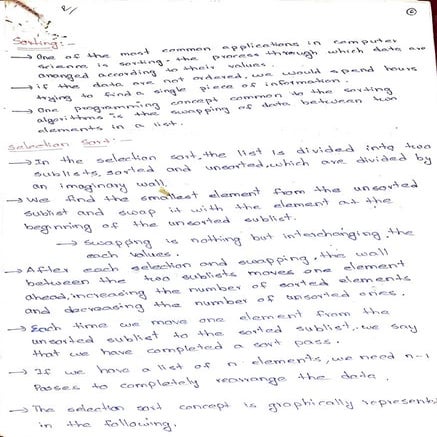 Sorting:-
→ One of the most common applications in computer
science is sorting, the process through which data are
arranged according to their values.
→ if the data are not ordered, we would spend hours
trying to find a single piece of information.
→ One programming concept common to the sorting
algorithms is the swapping of data between two
elements in a list.
Selection Sort:-
→ In the selection sort, the list is divided into two
sublists, sorted and unsorted, which are divided by
an imaginary wall.
→ We find the smallest element from the unsorted
sublist and swap it with the element at the
beginning of the unsorted sublist.
→ Swapping is nothing but interchanging the
each values.
→ After each selection and swapping, the wall
between the two sublists moves one element
ahead, increasing the number of sorted elements
and decreasing the number of unsorted ones.
→ Each time we move one element from the
unsorted sublist to the sorted sublist, we say
that we have completed a sort pass.
→ If we have a list of n elements, we need n-1
Passes to completely rearrange the data.
→ The selection sort concept is graphically represent
in the following.